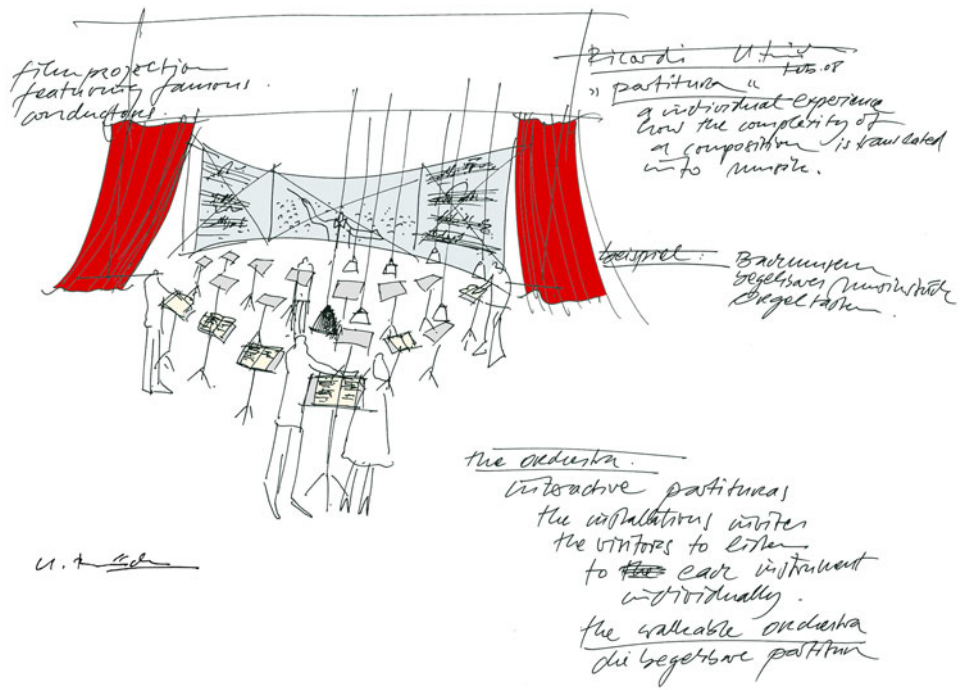 film projection
featuring famous
conductors.
Ricardi
Feb. 08
"partitura"
a individual experience
how the complexity of
a composition is translated
into musik.
beispiel:
begehbares
the orchestra.
interactive partituras
the installations invites
the visitors to listen
to each instrument
individually.
the walkable orchestra
die begehbare partitur